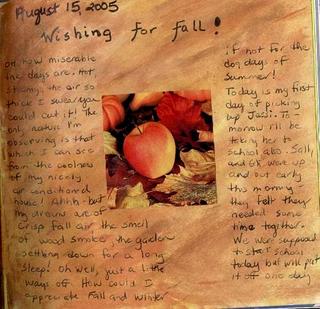 August 15, 2005
Wishing for Fall!
oh, how miserable
the days are. Hot,
steamy, the air so
thick I swear you
could cut it! The
only nature I'm
observing is that
which I can see
from the coolness
of my nicely
air conditioned
house! Ahhh - but
my dreams are of
crisp fall air, the smell
of wood smoke, the garden
settling down for a long
sleep. Oh well, just a little
ways off. How could I
appreciate Fall and Winter
if not for the
dog days of
summer!
Today is my first
day of picking
up Jessi. To-
morrow I'll be
taking her to
school also. Sally
and were up
and out early
this morning -
they felt they
needed some
time together.
We were supposed
to start school
today but will put
it off one day